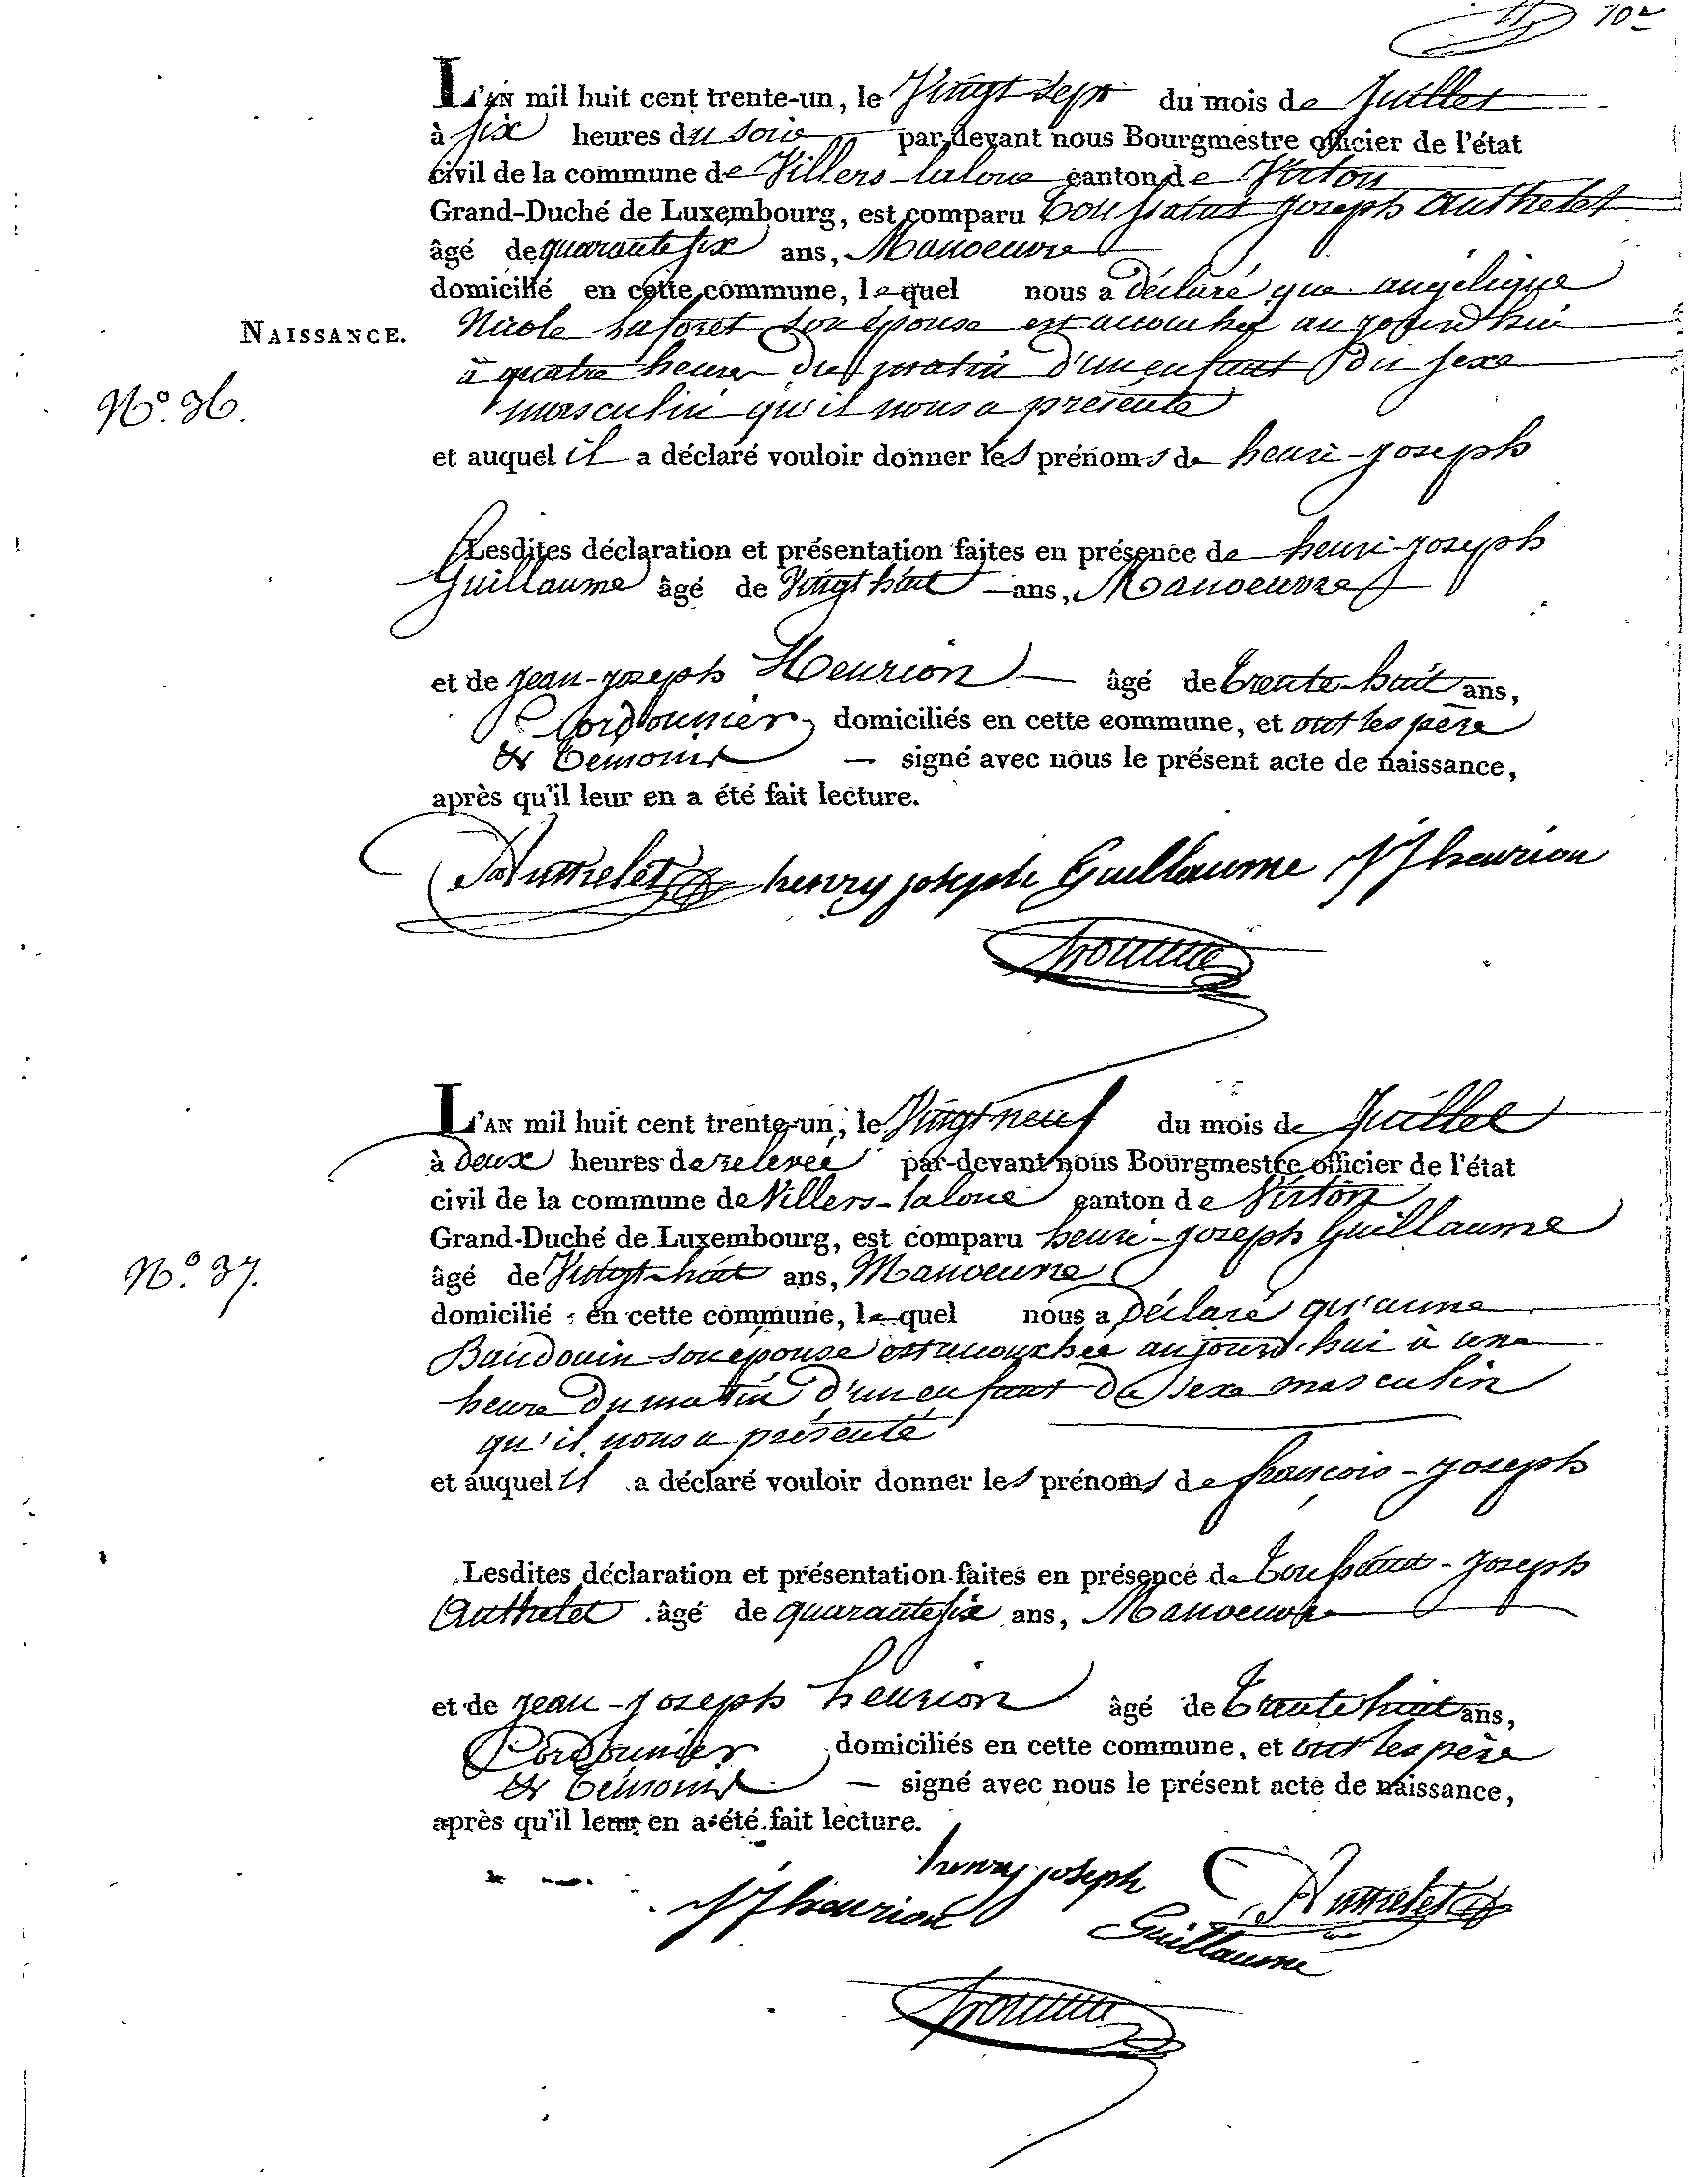 10e
L'AN mil huit cent trente-un, le Vingt sept du mois de Juillet
à six heures du soir par-devant nous Bourgmestre officier de l'état
civil de la commune de Villers-laloue canton de Virton
Grand-Duché de Luxembourg, est comparu Toussaint Joseph Authelet
âgé de quarante six ans, Manoeuvre
domicilié en cette commune, lequel nous a déclaré que angélique
NAISSANCE. Nicole Laforet son épouse est accouchée aujourd'hui
à quatre heures du matin d'un enfant du sexe
N.º 36. masculin qu'il nous a présenté
et auquel il a déclaré vouloir donner les prénoms de henri-joseph
Lesdites déclaration et présentation faites en présence de henri-joseph
Guillaume âgé de Vingt huit ans, Manoeuvre
et de jean-joseph Henrion âgé de trente-huit ans,
Cordonnier, domiciliés en cette commune, et ont les père
& temoins signé avec nous le présent acte de naissance,
après qu'il leur en a été fait lecture.
Authelet henry joseph Guillaume JJ henrion
L'AN mil huit cent trente-un, le Vingt neuf du mois de Juillet
à deux heures de relevée par-devant nous Bourgmestre officier de l'état
civil de la commune de Villers-laloue canton de Virton
Grand-Duché de Luxembourg, est comparu henri-joseph Guillaume
N.º 37. âgé de Vingt-huit ans, Manoeuvre
domicilié en cette commune, lequel nous a déclaré qu'anne
Baudouin son épouse est accouchée aujourd'hui à une
heure du matin d'un enfant du sexe masculin
qu'il nous a présenté
et auquel il a déclaré vouloir donner les prénoms de françois-joseph
Lesdites déclaration et présentation faites en présence de Toussaint-joseph
Authelet âgé de quarante six ans, Manoeuvre
et de jean-joseph henrion âgé de trente huit ans,
Cordonnier domiciliés en cette commune, et ont les père
& temoins signé avec nous le présent acte de naissance,
après qu'il leur en a été fait lecture.
henry joseph Authelet
JJ henrion Guillaume